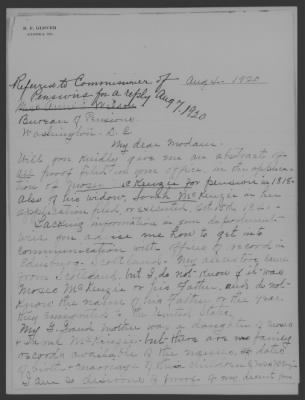 Aug 4. 1920
Referred to Commissioner of
Pensions for a reply Aug 7, 1920
Bureau of Pensions
Washington D. C
My dear Madam:
Will you kindly give me an abstract of
all proof filed in your office, in the application
of Moses McKenzie for pension in 1818-
also of his widow, Sarah McKenzie in her
application filed, or executed, Oct 6th 1841.
Lacking information in your department-
will you advise me how to get into
communication with office of record in
Edinburgh Scotland. My ancestors came
from Scotland, but I do not know if it was
Moses McKenzie or his father, and do not-
know the name of his father or the year
they emigrated to the United States.
My G. Grand mother was a daughter of Moses
& Sarah McKenzie. but there are no family
records available of the names, or dates
of birth & marriage of their children
I am so desirous of proof of my